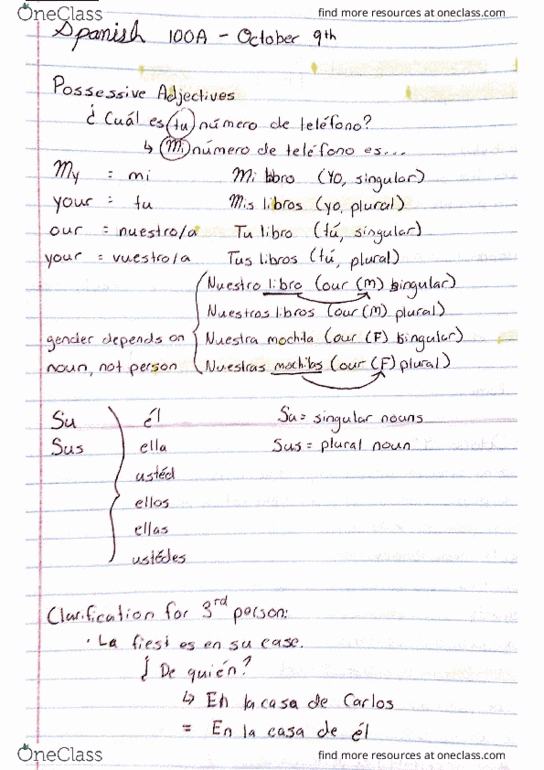 OneClass
find more resources at oneclass.com
Spanish 100A - October 9th
Possessive Adjectives
¿ Cuál es tu número de teléfono?
↳ Mi número de teléfono es...
My = mi Mi libro (Yo, singular)
your = tu Mis libros (yo, plural)
our = nuestro/a Tu libro (tú, singular)
your = vuestro/a Tus libros (tú, plural)
Nuestro libro (our (M) singular)
Nuestros libros (our (M) plural)
gender depends on Nuestra mochila (our (F) singular)
noun, not person Nuestras mochilas (our (F) plural)
Su él Su = singular nouns
Sus ella Sus = plural noun
ustéd
ellos
ellas
ustédes
Clarification for 3rd person:
· La fiest es en su case.
¿ De quién?
↳ En la casa de Carlos
= En la casa de él
OneClass
find more resources at oneclass.com